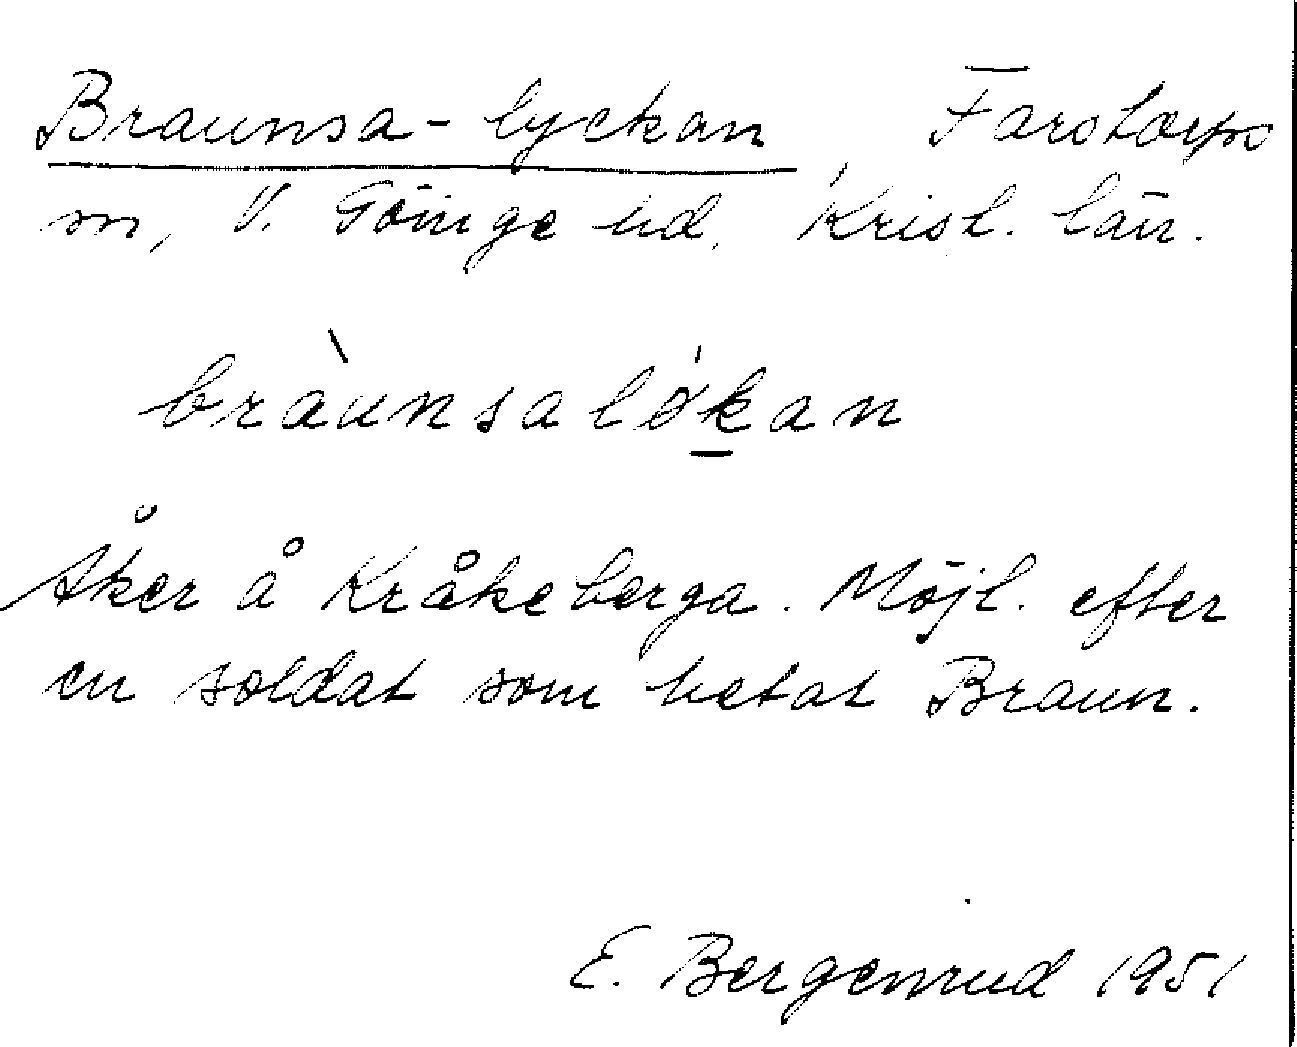 Braunsa-lyckan Farstorps
sn, V. Göinge hd, Krist. län.
bràunsaløkan
Åker å Kråkeberga. Möjl. efter
en soldat som hetat Braun.
E. Bergenrud 1951